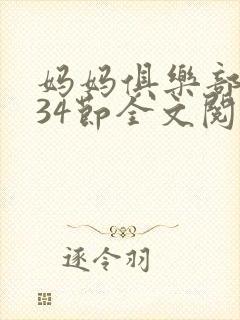 妈妈俱樂部
34節全文閱
逐令羽